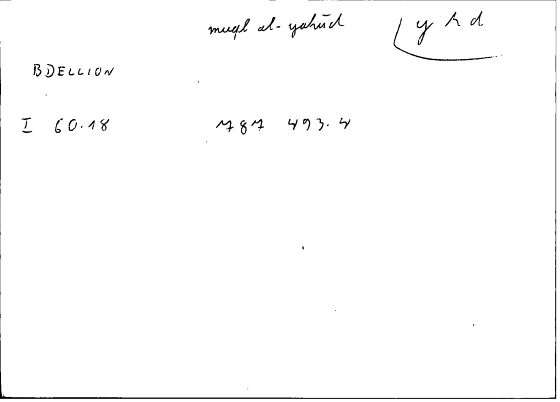 muql al-yahūd y h d
BDELLION
I 60.18 787 493.4